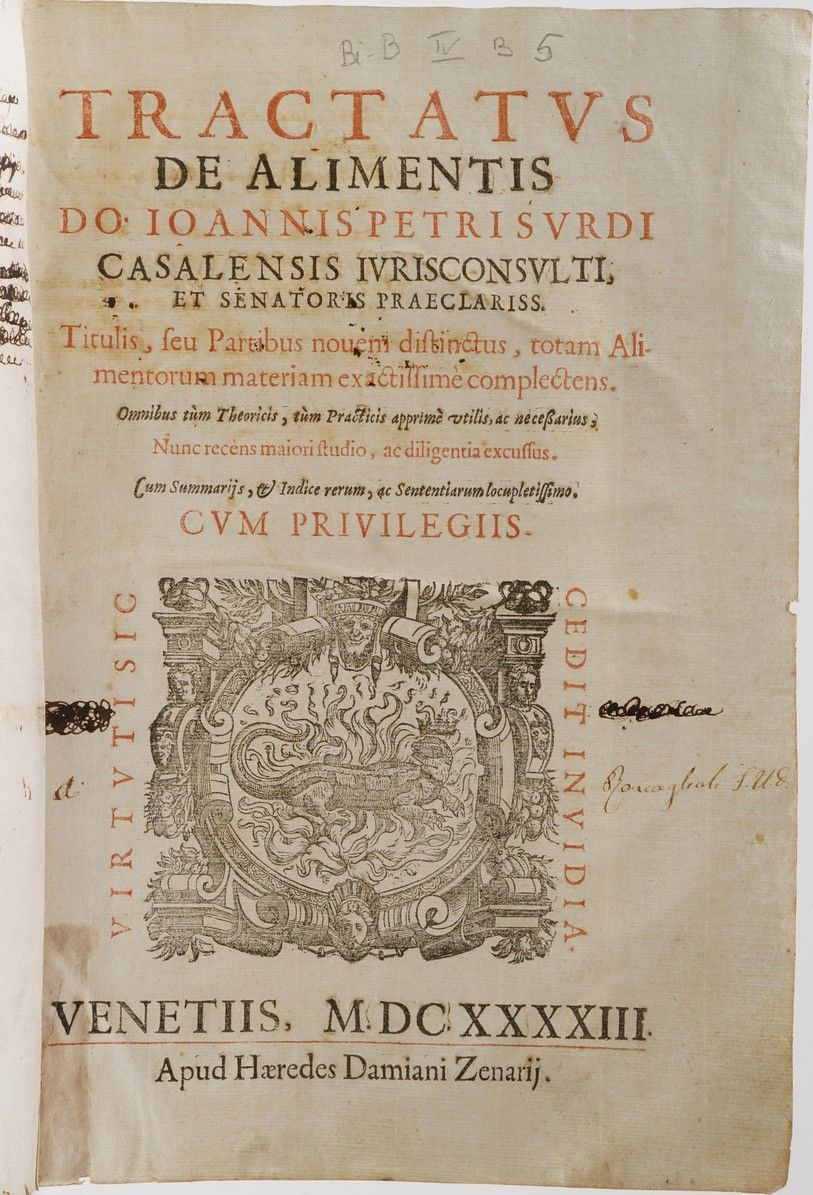 Bi-B IV B 5
TRACTATVS
DE ALIMENTIS
DO. IOANNIS PETRI SVRDI
CASALENSIS IVRISCONSVLTI,
ET SENATORIS PRAECLARISS.
Titulis, seu Partibus nouem distinctus, totam Ali-
mentorum materiam exactissimè complectens.
Omnibus tùm Theoricis, tùm Practicis apprimè vtilis, ac neceßarius;
Nunc recèns maiori studio, ac diligentia excussus.
Cum Summarijs, & Indice rerum, ac Sententiarum locupletissimo.
CVM PRIVILEGIIS.
VIRTVTI SIC
CEDIT INVIDIA.
VENETIIS, M. DC. XXXXIII.
Apud Hæredes Damiani Zenarij.